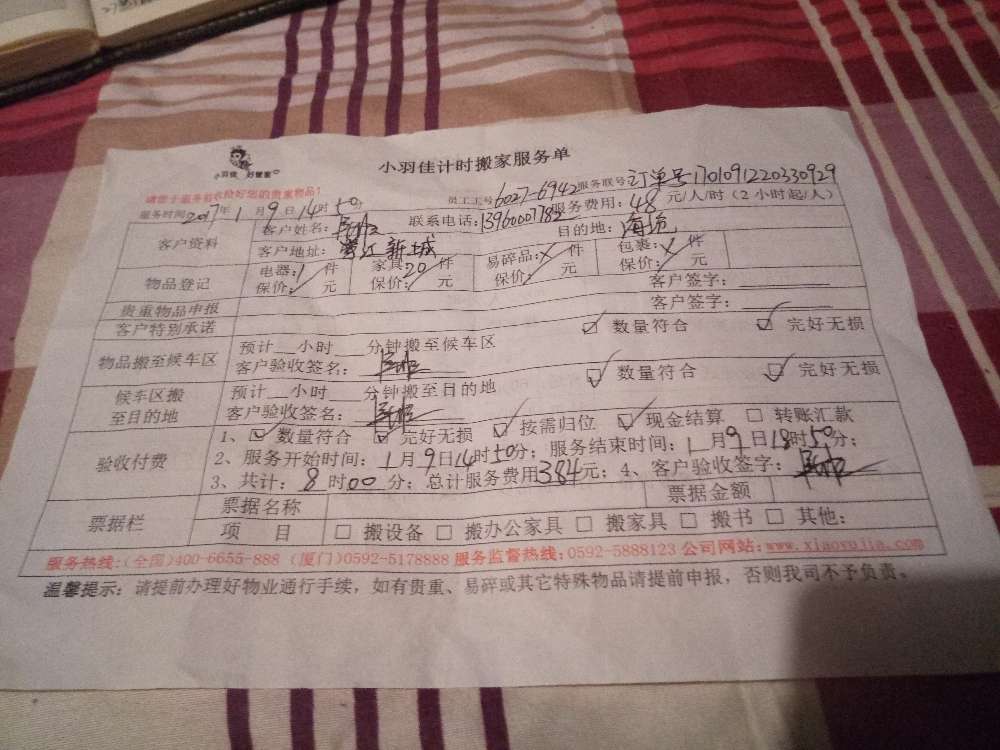 小羽佳计时搬家服务单
小羽佳 好管家
请您于服务前收拾好您的贵重物品!
员工工号 6027-6942 服务联号 订单号170109122033 0929
服务时间2017年1月9日14时50分 联系电话:13960007782 服务费用:48元/人/时(2小时起/人)
客户资料 客户姓名: 目的地:海沧
客户地址: 新城
物品登记 电器:1件 家具:20件 易碎品:X件 包裹:X件
保价: 元 保价: 元 保价: 元 保价: 元
客户签字:
贵重物品申报 客户签字:
客户特别承诺
物品搬至候车区 预计__小时__分钟搬至候车区 ☑ 数量符合 ☑ 完好无损
客户验收签名:
候车区搬至目的地 预计__小时__分钟搬至目的地 ☑ 数量符合 ☑ 完好无损
客户验收签名:
验收付费 1、☑ 数量符合 ☑ 完好无损 ☑ 按需归位 ☑ 现金结算 □ 转账汇款
2、服务开始时间:1月9日14时50分;服务结束时间:1月9日18时50分;
3、共计:8时00分;总计服务费用384元;4、客户验收签字:
票据栏 票据名称 票据金额
项 目 □ 搬设备 □ 搬办公家具 □ 搬家具 □ 搬书 □ 其他:
服务热线:(全国)400-6655-888 (厦门)0592-5178888 服务监督热线:0592-5888123 公司网站:www.xiaoyujia.com
温馨提示:请提前办理好物业通行手续,如有贵重、易碎或其它特殊物品请提前申报,否则我司不予负责。